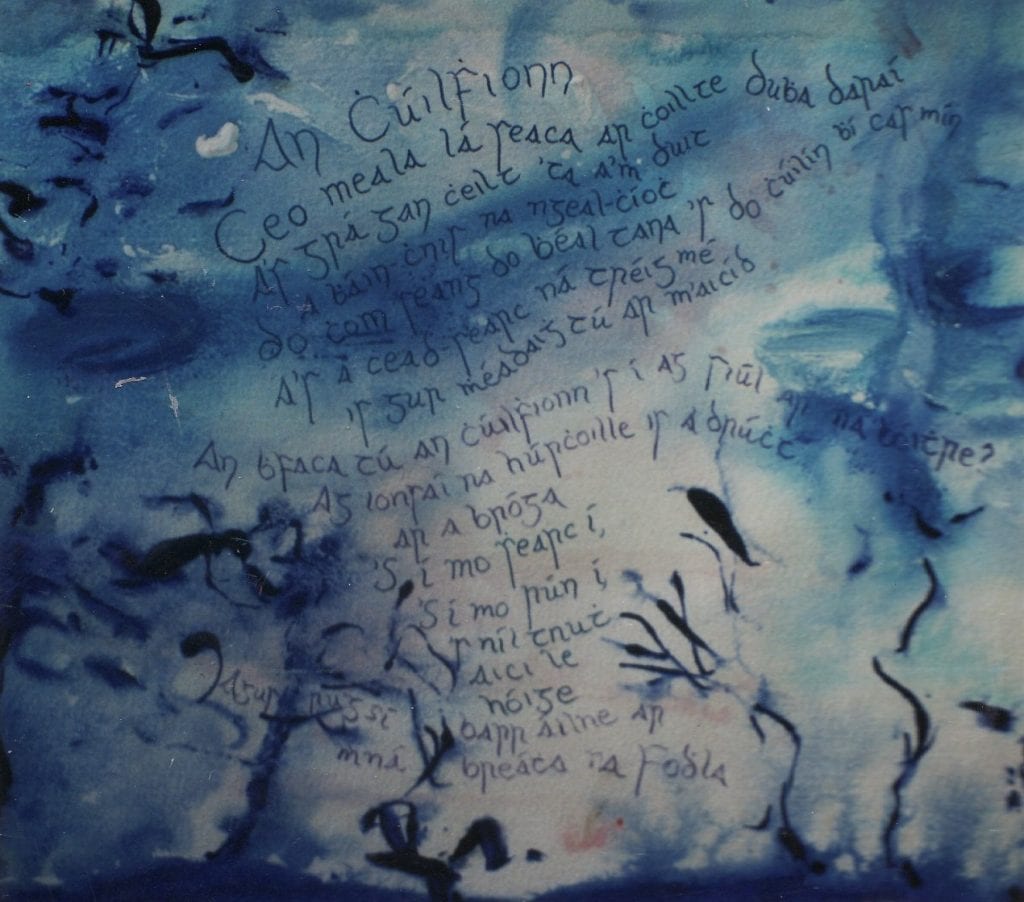 An Ċúilḟionn
Ceo meala lá seaca ar ċoillte duḃa daraí
A's grá gan ċeilt 'tá a'm duit
a ḃáin-ċnis na ngeal-ċíoċ
do ċom seang do ḃéal tana 's do ċúilín ḃí cas mín
A's a ċéad-searc ná tréig mé
is gur méadaiġ tú ar m'aicíd
An bfaca tú an ċúilḟionn 's í ag siúl ar na bóiṫre?
Ag lonraí na húrċoille is a drúċt
ar a bróga
'S í mo ṡearc í,
'S í mo rún í,
's níl tnuṫ
aici le
hóige
Agus rug sí barr áilne ar
mná breáċa na Fodla